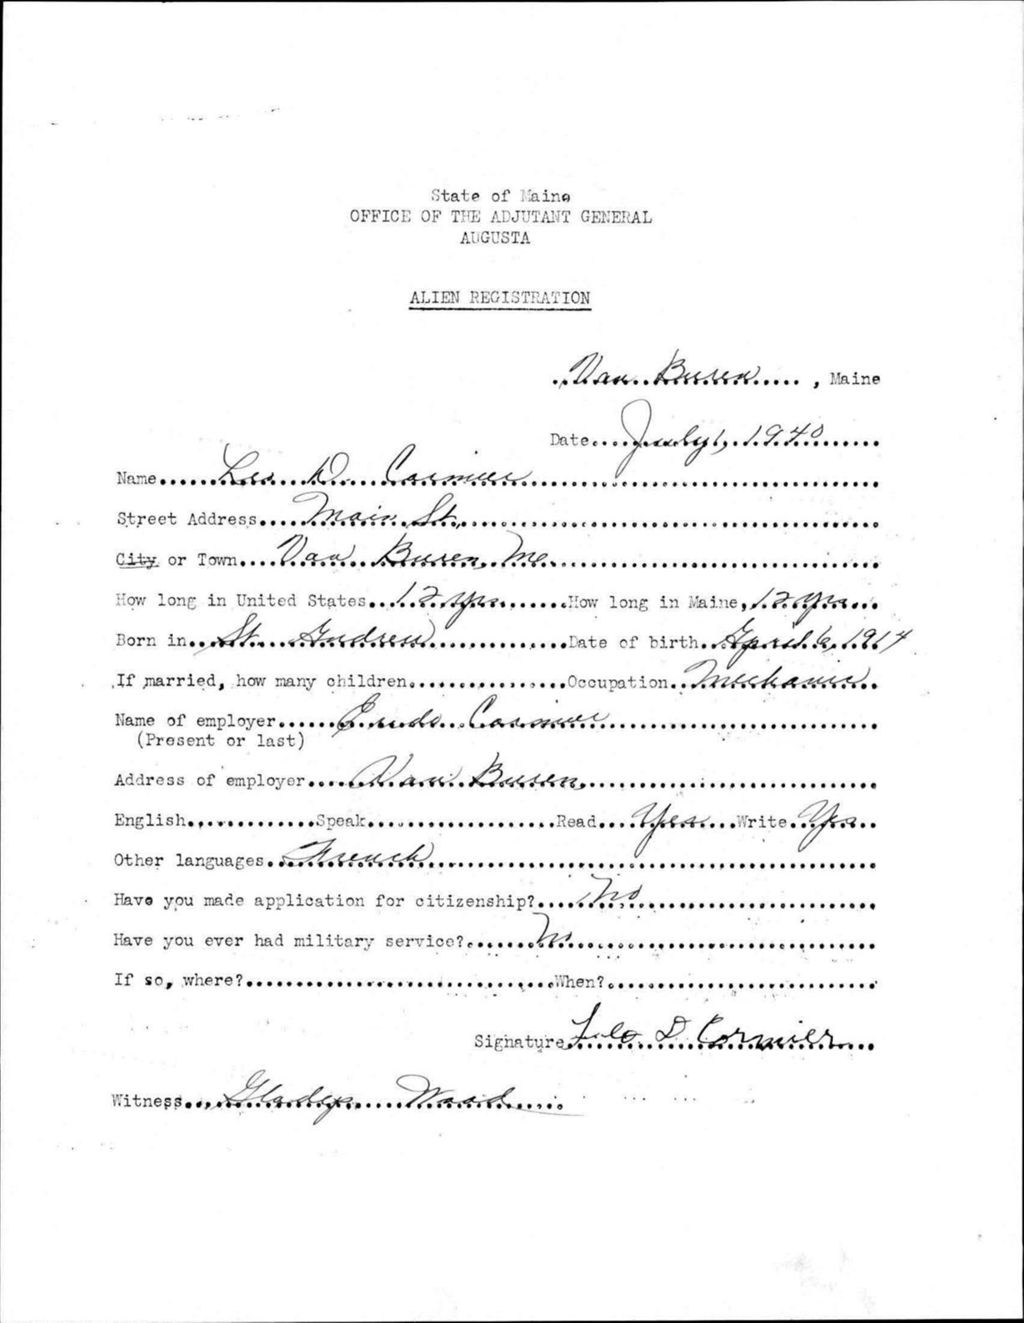 State of Maine
OFFICE OF THE ADJUTANT GENERAL
AUGUSTA
ALIEN REGISTRATION
Van Buren, Maine
Date July 1, 1940
Name Leo D. Cormier
Street Address Main St.
City or Town Van Buren, Me.
How long in United States 12 yrs How long in Maine 12 yrs
Born in St. Andrew Date of birth April 6, 1914
If married, how many children Occupation Mechanic
Name of employer Cormier
(Present or last)
Address of employer Van Buren
English Speak Read Yes Write Yes
Other languages French
Have you made application for citizenship? No
Have you ever had military service? No
If so, where? When?
Signature Leo D Cormier
Witness Gladys Wood